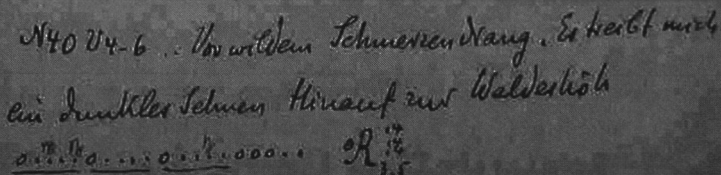 N40 V4-6 .. Vor wildem Schmerzendrang. Es treibt mich
ein dunkles Sehnen Hinauf zur Waldeshöh